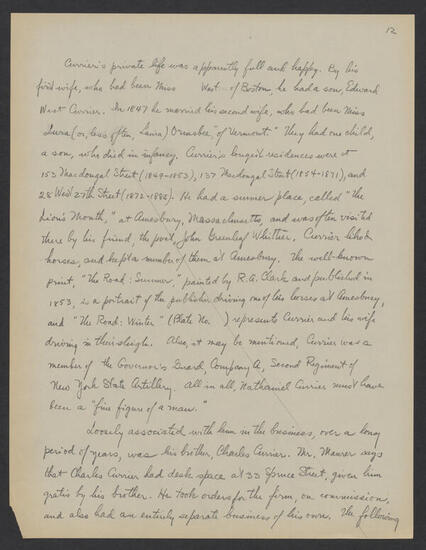 12
Currier's private life was apparently full and happy. By his
first wife, who had been Miss West of Boston, he had a son, Edward
West Currier. In 1847 he married his second wife, who had been Miss
Lura (or, less often, Laura) Ormsbee, "of Vermont." They had one child,
a son, who died in infancy. Currier's longest residences were at
153 Macdougal Street (1849-1853), 137 Macdougal Street (1854-1871), and
28 West 27th Street (1872-1888). He had a summer place, called "The
Lion's Mouth," at Amesbury, Massachusetts, and was often visited
there by his friend, the poet, John Greenleaf Whittier. Currier liked
horses, and kept a number of them at Amesbury. The well-known
print, "The Road: Summer," painted by R.A. Clark and published in
1853, is a portrait of the publisher driving one of his horses at Amesbury,
and "The Road: Winter" (Plate No. ) represents Currier and his wife
driving in their sleigh. Also, it may be mentioned, Currier was a
member of the Governor's Guard, Company A, Second Regiment of
New York State Artillery. All in all, Nathaniel Currier must have
been a "fine figure of a man."
Loosely associated with him in the business, over a long
period of years, was his brother, Charles Currier. Mr. Maurer says
that Charles Currier had desk space at 33 Spruce Street, given him
gratis by his brother. He took orders for the firm, on commission,
and also had an entirely separate business of his own. The following